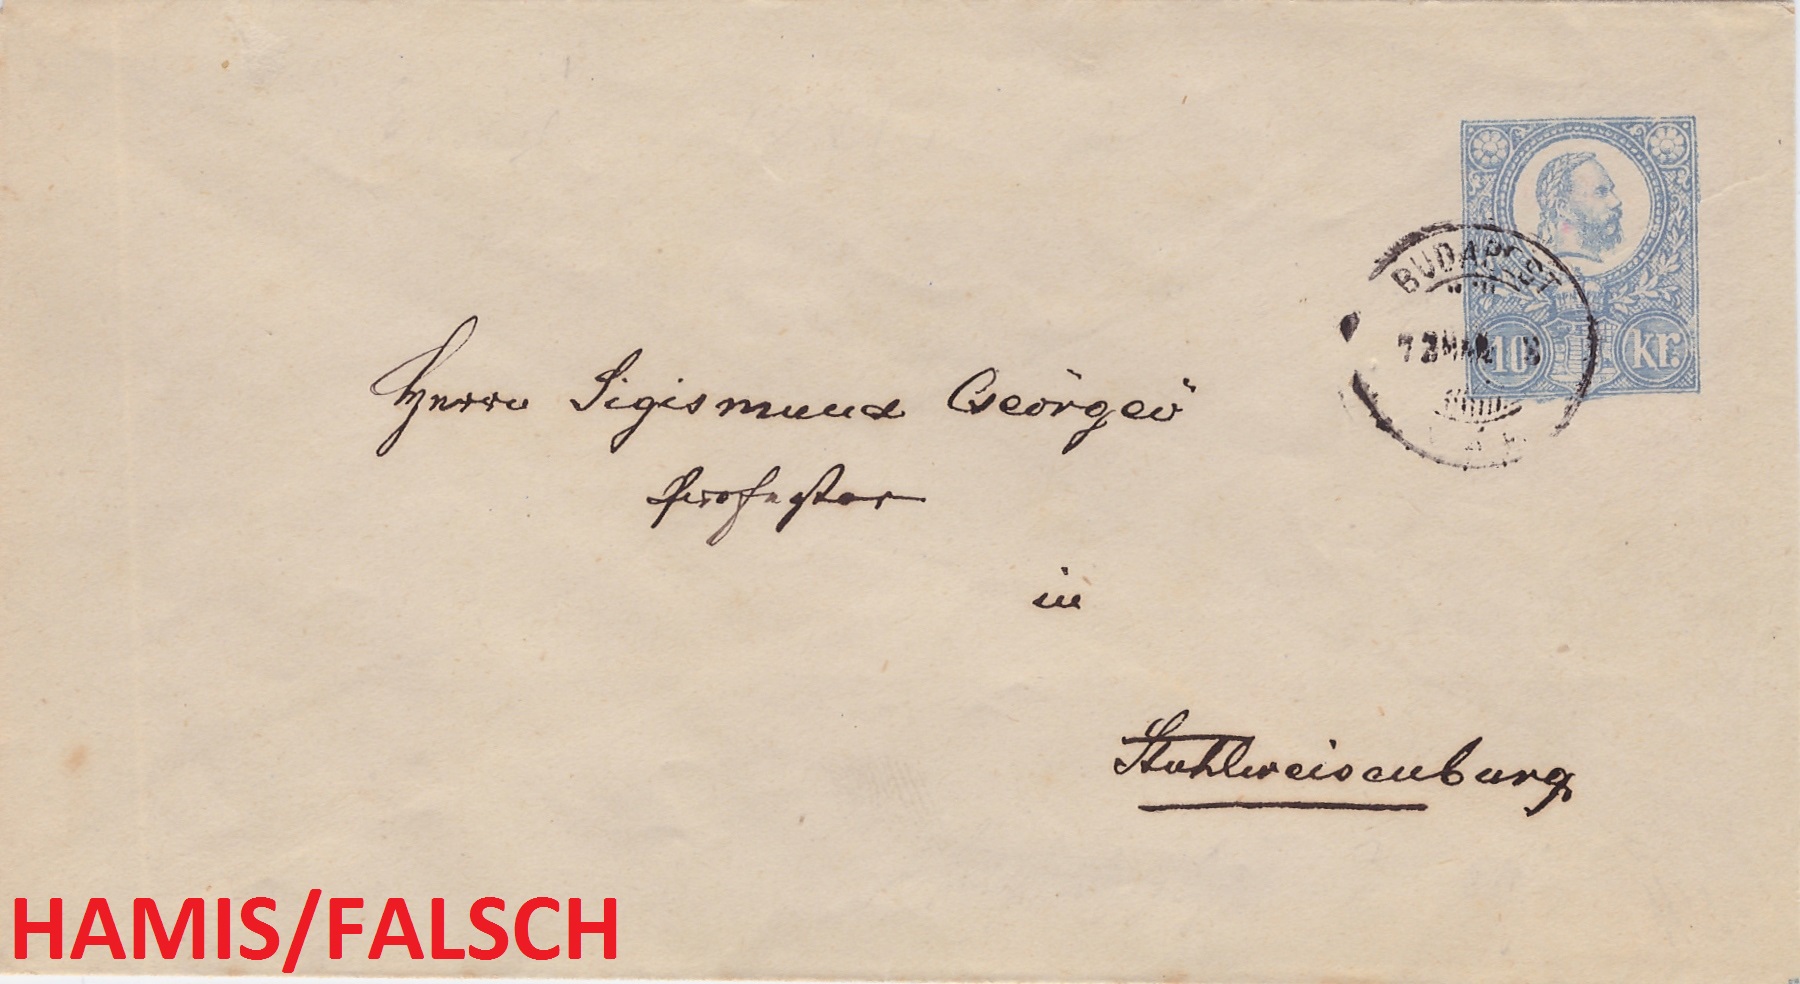 BUDAPEST
10 kr.
Herrn Sigismund Cseörgeö
Professor
in
Stuhlweisenburg
HAMIS/FALSCH